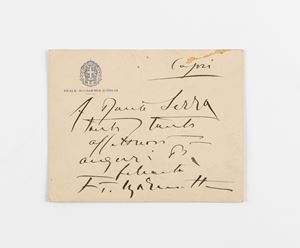 Capri
REALE ACCADEMIA D'ITALIA
A Dante Serra
tanti tanti
affettuosi
auguri di
F. T. Marinetti